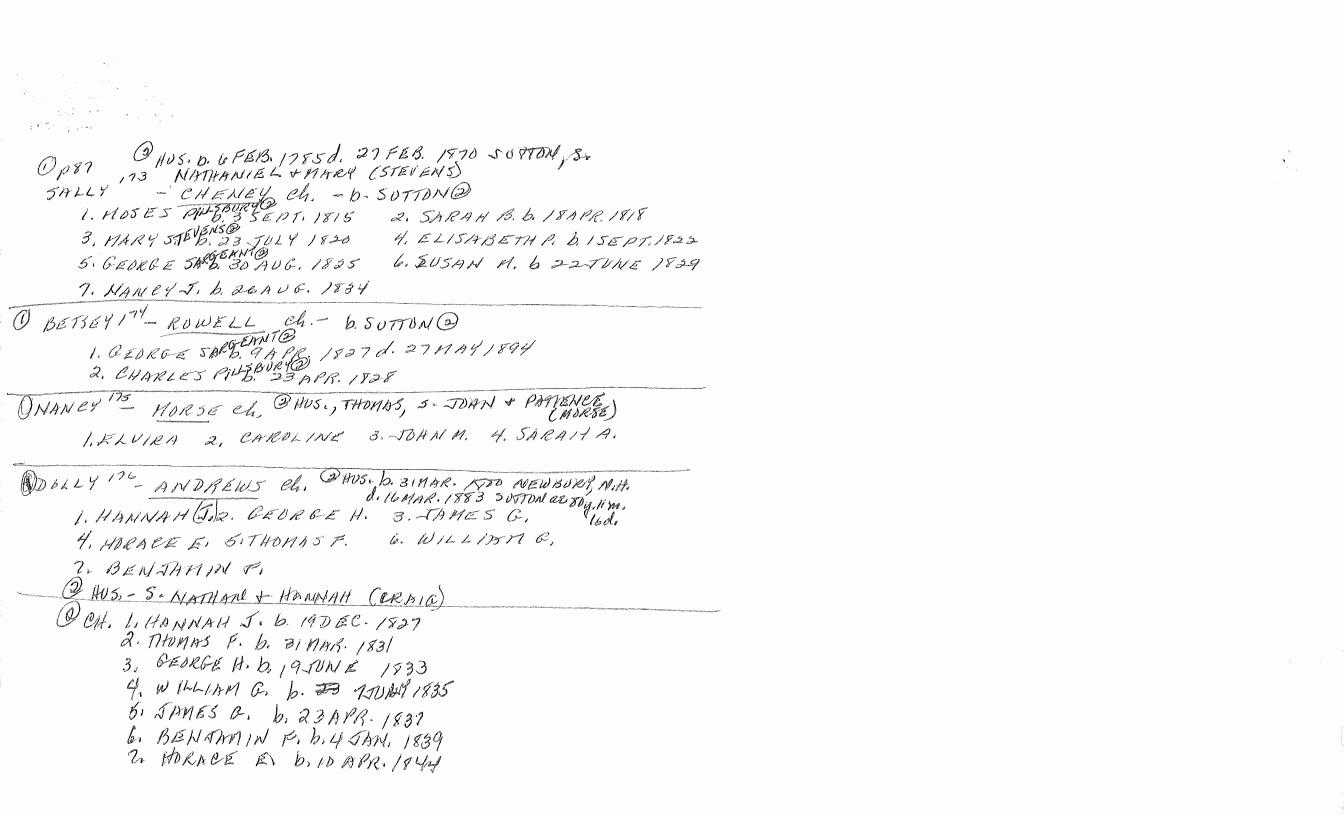 ① p87 ② HUS. b. 6 FEB. 1785 d. 27 FEB. 1870 SUTTON, S.
,73 NATHANIEL + MARY (STEVENS)
SALLY - CHENEY ch. - b. SUTTON ②
1. MOSES PILLSBURY ② b. 3 SEPT. 1815 2. SARAH B. b. 18 APR. 1818
3. MARY STEVENS ② b. 23 JULY 1820 4. ELISABETH P. b. 1 SEPT. 1822
5. GEORGE SARGEANT ② b. 30 AUG. 1825 6. SUSAN M. b 22 JUNE 1829
7. NANCY J. b. 26 AUG. 1834
① BETSEY 174 - ROWELL ch. - b. SUTTON ②
1. GEORGE SARGEANT ② b. 9 APR. 1827 d. 27 MAY 1894
2. CHARLES PILLSBURY ② b. 23 APR. 1828
① NANCY 175 - MORSE ch. ② HUS., THOMAS, S. JOHN + PATIENCE
(MORSE)
1. ELVIRA 2. CAROLINE 3. JOHN M. 4. SARAH A.
① DOLLY 176 - ANDREWS ch. ② HUS. b. 31 MAR. NEWBURY, N.H.
d. 16 MAR. 1883 SUTTON ae 80y. 11m.
16d.
1. HANNAH (J.) 2. GEORGE H. 3. JAMES G.
4. HORACE E. 5. THOMAS F. 6. WILLIAM G.
7. BENJAMIN F.
② HUS. - S. NATHAN + HANNAH (CRAIG)
② CH. 1. HANNAH J. b. 19 DEC. 1827
2. THOMAS F. b. 31 MAR. 1831
3. GEORGE H. b. 19 JUNE 1833
4. WILLIAM G. b. 23 7 1835
5. JAMES G. b. 23 APR. 1837
6. BENJAMIN F. b. 4 JAN. 1839
7. HORACE E. b. 10 APR. 1844